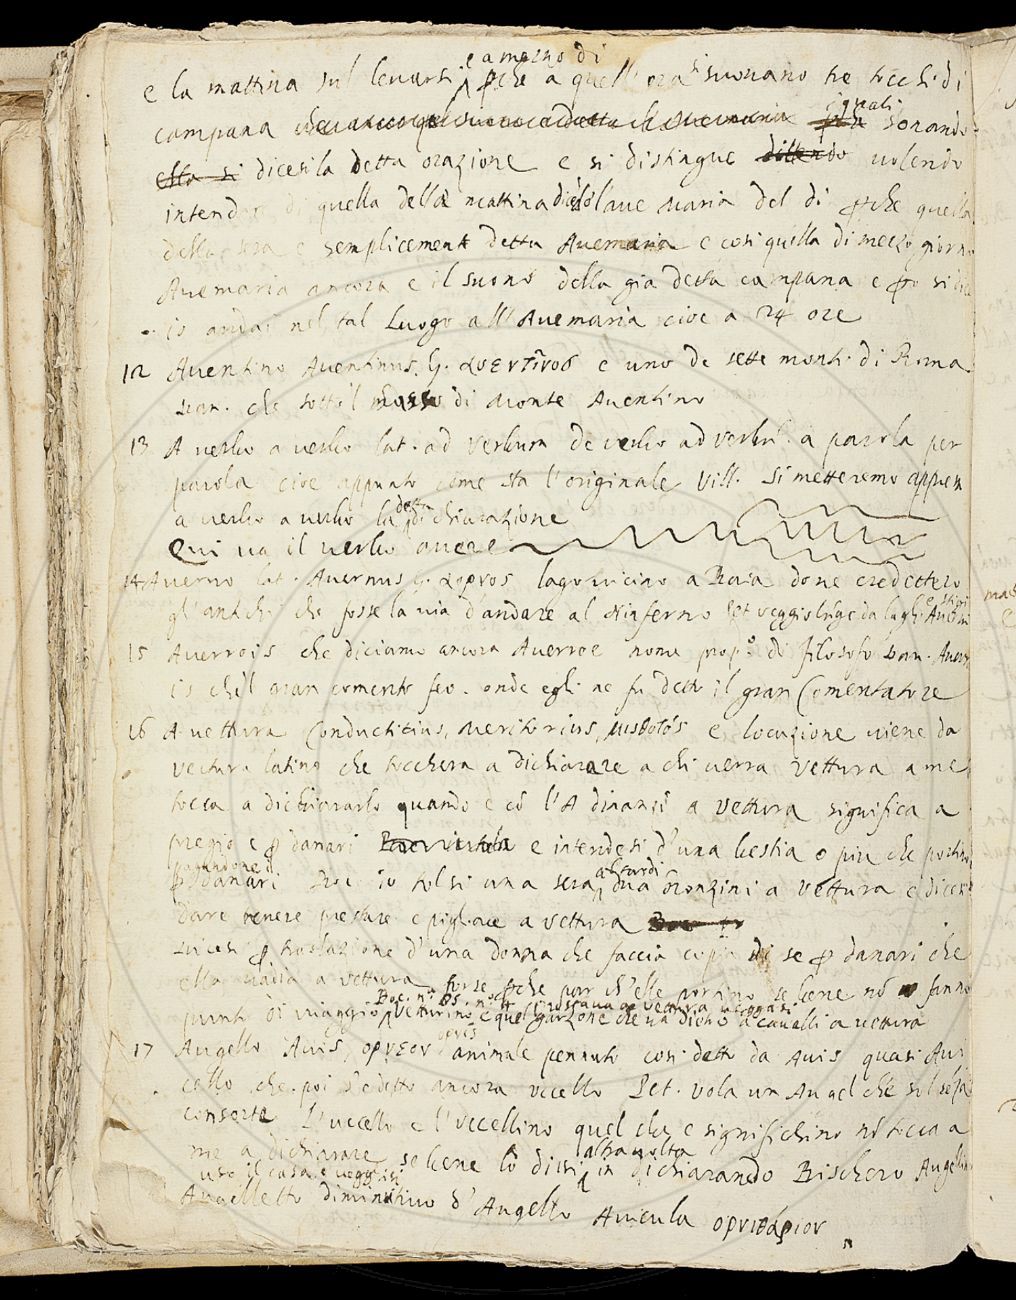 e a mezzo di
e la mattina sul levarsi pche a quell'ora suonano tre tocchi di
campana i quali sonando
ella si dicesi la detta orazione e si distingue dicendo volendo
intender di quella della mattina dicesi l'ave maria del di pche quella
della sera e semplicemente detta Avemaria e cosi quella di mezzo giorno
Avemaria ancora e il suono della gia detta campana e po si dice
io andai nel tal Luogo all'Avemaria cioe a 24 ore
12 Aventino Aventinus, G. αυεντῖνος e uno de sette monti di Roma
che sotto 'l di Monte Aventino
13 A verbo a verbo lat. ad verbum de verbo ad verbũ. a parola per
parola cioe appunto come sta l'originale Vill. Si metteremo appresso
a verbo a verbo la detta dichiarazione
Qui va il verbo avere
14 Averno lat. Avernus G. αορνος lago vicino a Baia dove credettero
gl'antichi che fosse la via d'andare al Ninferno Pet
15 Averrois che diciamo ancora Averroe nome prop.o di filosofo Dan. Averr
is che'l gran comento feo. onde egli ne fu detto il gran Comentatore
16 A vettura Conductitius, Meritorius, μισθοτός e locuzione viene da
vectura latino che tocchera a dichiarare a chi verra Vettura a me
tocca a dichiararlo quando e cõ l'A dinanzi a vettura significa a
prezzo e p danari e intendesi d'una bestia o piu che portino
pagandone di
p danari Boc. io tolsi una sera dua ronzini a vettura e dicesi
dare tenere prestare e pigliare a vettura
dicesi p traslazione d'una donna che faccia copia di se p danari che
ella vadia a vettura forse pche pur ch'elle portino se bene nõ fanno
punto di viaggio Vetturino e quel garzone che va dietro a cavalli a vettura
17 Augello Avis, ορνεον ορνις animale pennuto cosi detto da Avis quasi Avi
cello che poi s'e detto ancora uccello Pet. vola un Augel che sol sẽza
consorte L'uccello e l'uccellino quel che e significhino nõ tocca a
me a dichiarare se bene lo dissi altra volta in dichiarando Bischero Augellino
Augelletto diminutivo d'Augello Avicula ορνιθάριον